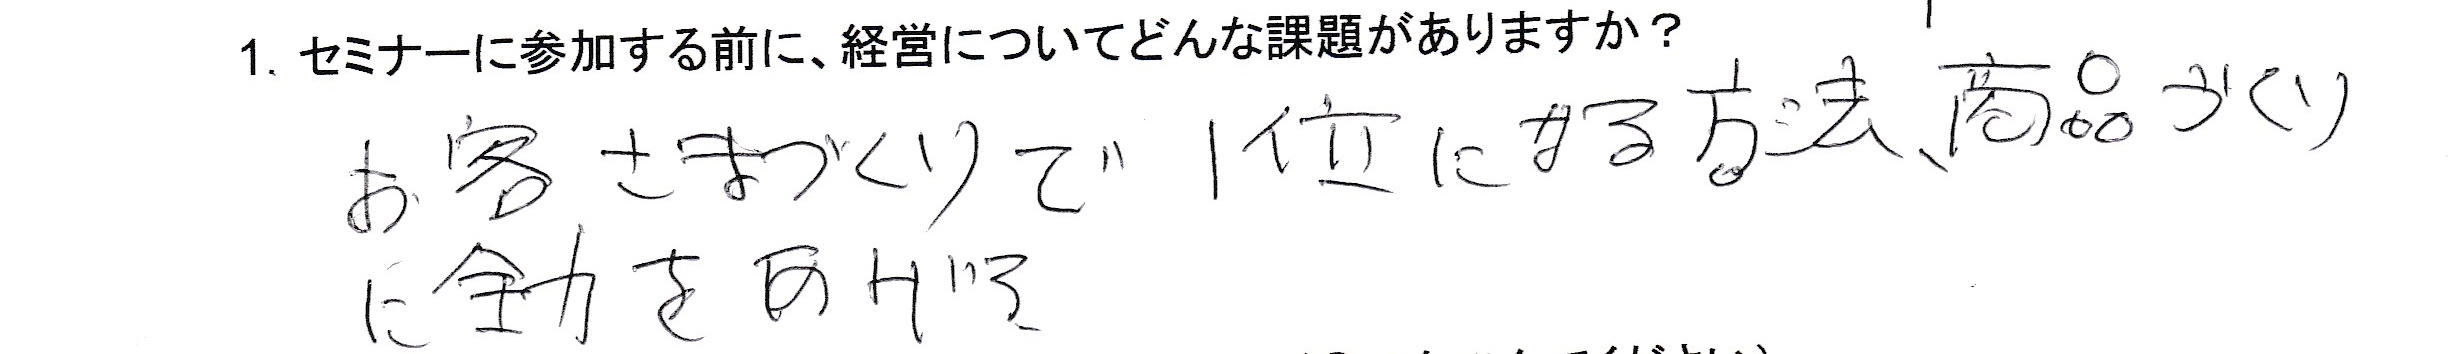 1. セミナーに参加する前に、経営についてどんな課題がありますか？
お客さまづくりで1位になる方法、商品づくり
に全力をあげる